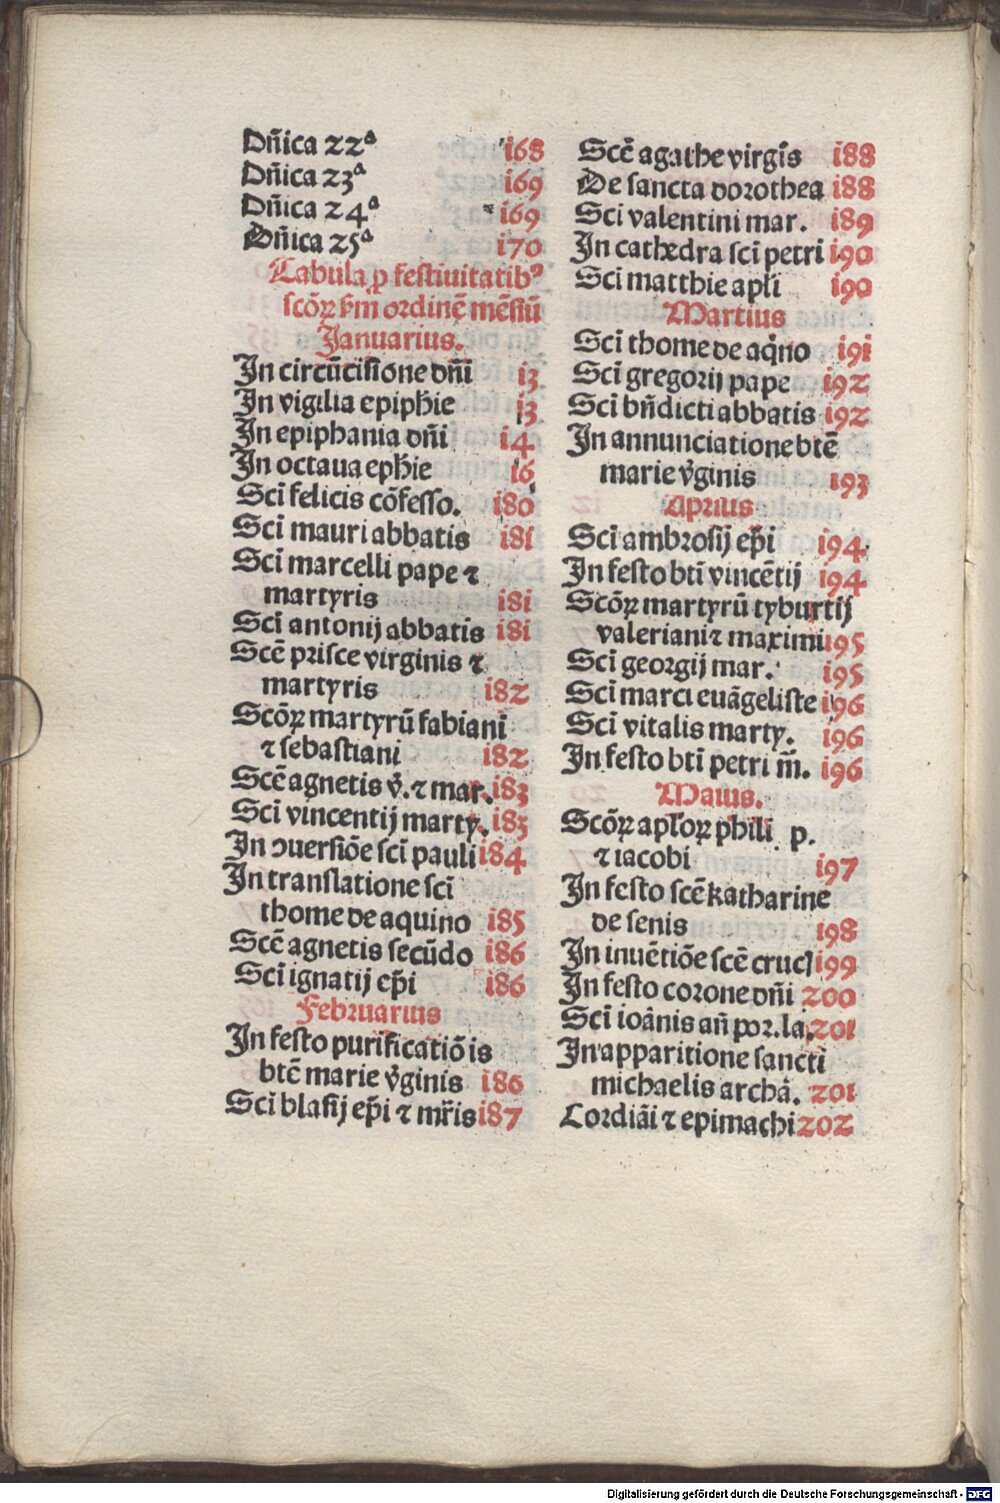 Dñica 22ª 168
Dñica 23ª 169
Dñica 24ª 169
Dñica 25ª 170
Tabula ꝓ festiuitatibꝰ
scõꝝ ẜm ordinẽ mẽsiũ
Januarius.
In circũcisione dñi 13
In vigilia epiphie 13
In epiphania dñi 14
In octaua ephie 16
Sci felicis cõfesso. 180
Sci mauri abbatis 181
Sci marcelli pape ⁊
martyris 181
Sci antonij abbatis 181
Scẽ prisce virginis ⁊
martyris 182
Scõꝝ martyrũ fabiani
⁊ sebastiani 182
Scẽ agnetis v̄. ⁊ mar. 183
Sci vincentij marty. 183
In ꝯuersiõe sci pauli 184
In translatione sci
thome de aquino 185
Scẽ agnetis secũdo 186
Sci ignatij ep̄i 186
Februarius
In festo purificatiõis
btẽ marie v̄ginis 186
Sci blasij ep̄i ⁊ mr̄is 187
Scẽ agathe virgis 188
De sancta dorothea 188
Sci valentini mar. 189
In cathedra sci petri 190
Sci matthie apli 190
Martius
Sci thome de aqino 191
Sci gregorij pape 192
Sci bñdicti abbatis 192
In annunciatione btẽ
marie v̄ginis 193
Aprius
Sci ambrosij ep̄i 194
In festo bti vincẽtij 194
Scõꝝ martyrũ tyburtij
valeriani ⁊ maximi 195
Sci georgij mar. 195
Sci marci euãgeliste 196
Sci vitalis marty. 196
In festo bti petri m̄. 196
Maius.
Scõꝝ aploꝝ phili p.
⁊ iacobi 197
In festo scẽ katharine
de senis 198
In inuẽtiõe scẽ cruci 199
In festo corone dñi 200
Sci ioãnis añ por. la. 201
In apparitione sancti
michaelis archã. 201
Cordiãi ⁊ epimachi 202
Digitalisierung gefördert durch die Deutsche Forschungsgemeinschaft - DFG